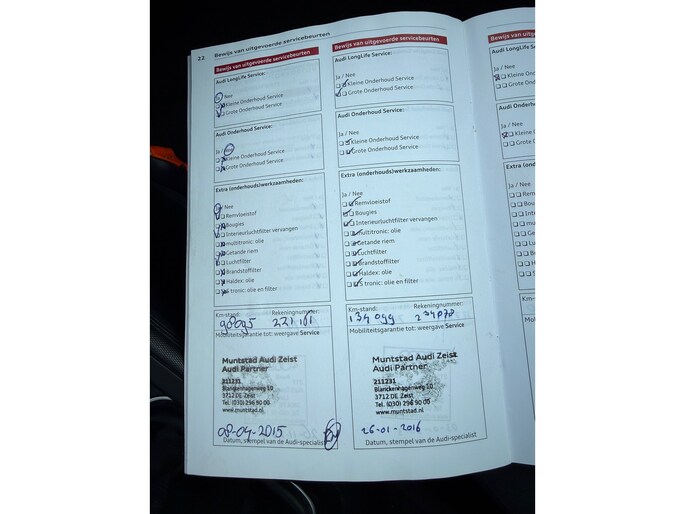 22 Bewijs van uitgevoerde servicebeurten
Bewijs van uitgevoerde servicebeurten
Audi LongLife Service:
Ja / Nee
Kleine Onderhoud Service
Grote Onderhoud Service
Audi Onderhoud Service:
Ja / Nee
Kleine Onderhoud Service
Grote Onderhoud Service
Extra (onderhouds)werkzaamheden:
Ja / Nee
Remvloeistof
Bougies
Interieurluchtfilter vervangen
multitronic: olie
Getande riem
Luchtfilter
Brandstoffilter
Haldex: olie
S tronic: olie en filter
Km-stand: Rekeningnummer:
221161
Mobiliteitsgarantie tot: weergave Service
Muntstad Audi Zeist
Audi Partner
211231
Blanckenhagenweg 10
3712 DE Zeist
Tel. (030) 296 90 00
www.muntstad.nl
08-04-2015
Datum, stempel van de Audi-specialist
Bewijs van uitgevoerde servicebeurten
Audi LongLife Service:
Ja / Nee
Kleine Onderhoud Service
Grote Onderhoud Service
Audi Onderhoud Service:
Ja / Nee
Kleine Onderhoud Service
Grote Onderhoud Service
Extra (onderhouds)werkzaamheden:
Ja / Nee
Remvloeistof
Bougies
Interieurluchtfilter vervangen
multitronic: olie
Getande riem
Luchtfilter
Brandstoffilter
Haldex: olie
S tronic: olie en filter
Km-stand: Rekeningnummer:
134099 234078
Mobiliteitsgarantie tot: weergave Service
Muntstad Audi Zeist
Audi Partner
211231
Blanckenhagenweg 10
3712 DE Zeist
Tel. (030) 296 90 00
www.muntstad.nl
26-01-2016
Datum, stempel van de Audi-specialist
Bewijs van uitgevoerde
Audi LongLife Service:
Ja / Nee
Kleine Onderhoud
Grote Onderhoud S
Audi Onderhoud
Ja / Nee
Kleine Onderh
Grote Onderh
Extra (onderhou
Ja / Nee
Remvloei
Bougies
Interieu
multitro
Getand
Luchtf
Brand
Halde
S tro
Km-stan
Mobilite
Datu